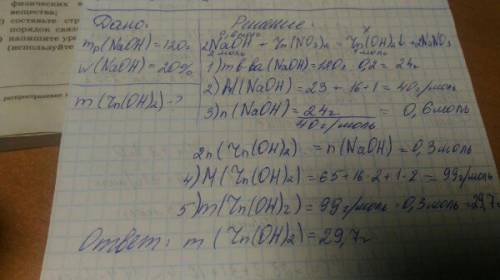 физических в
вещества;
составьте стр
порядок связ
напишите ур
(используйте
распространение в
Дано:
mр(NaOH)=120г
w(NaOH)=20%
m(Zn(OH)₂)-?
Решение:
0,6моль
2NaOH + Zn(NO₃)₂ = Zn(OH)₂↓+2NaNO₃
2моль
1моль
1) m в-ва (NaOH)=120г. 0,2 = 24г
2) M(NaOH) = 23 + 16+1 = 40г/моль
3) n(NaOH)= 24г/40г/моль = 0,6моль
2n(Zn(OH)₂) = n(NaOH)=0,3моль
4) M(Zn(OH)₂)=65+16·2+1·2 = 99г/моль
5) m(Zn(OH)₂)=99г/моль·0,3моль=29,7г
Ответ: m (Zn(OH)₂)=29,7г